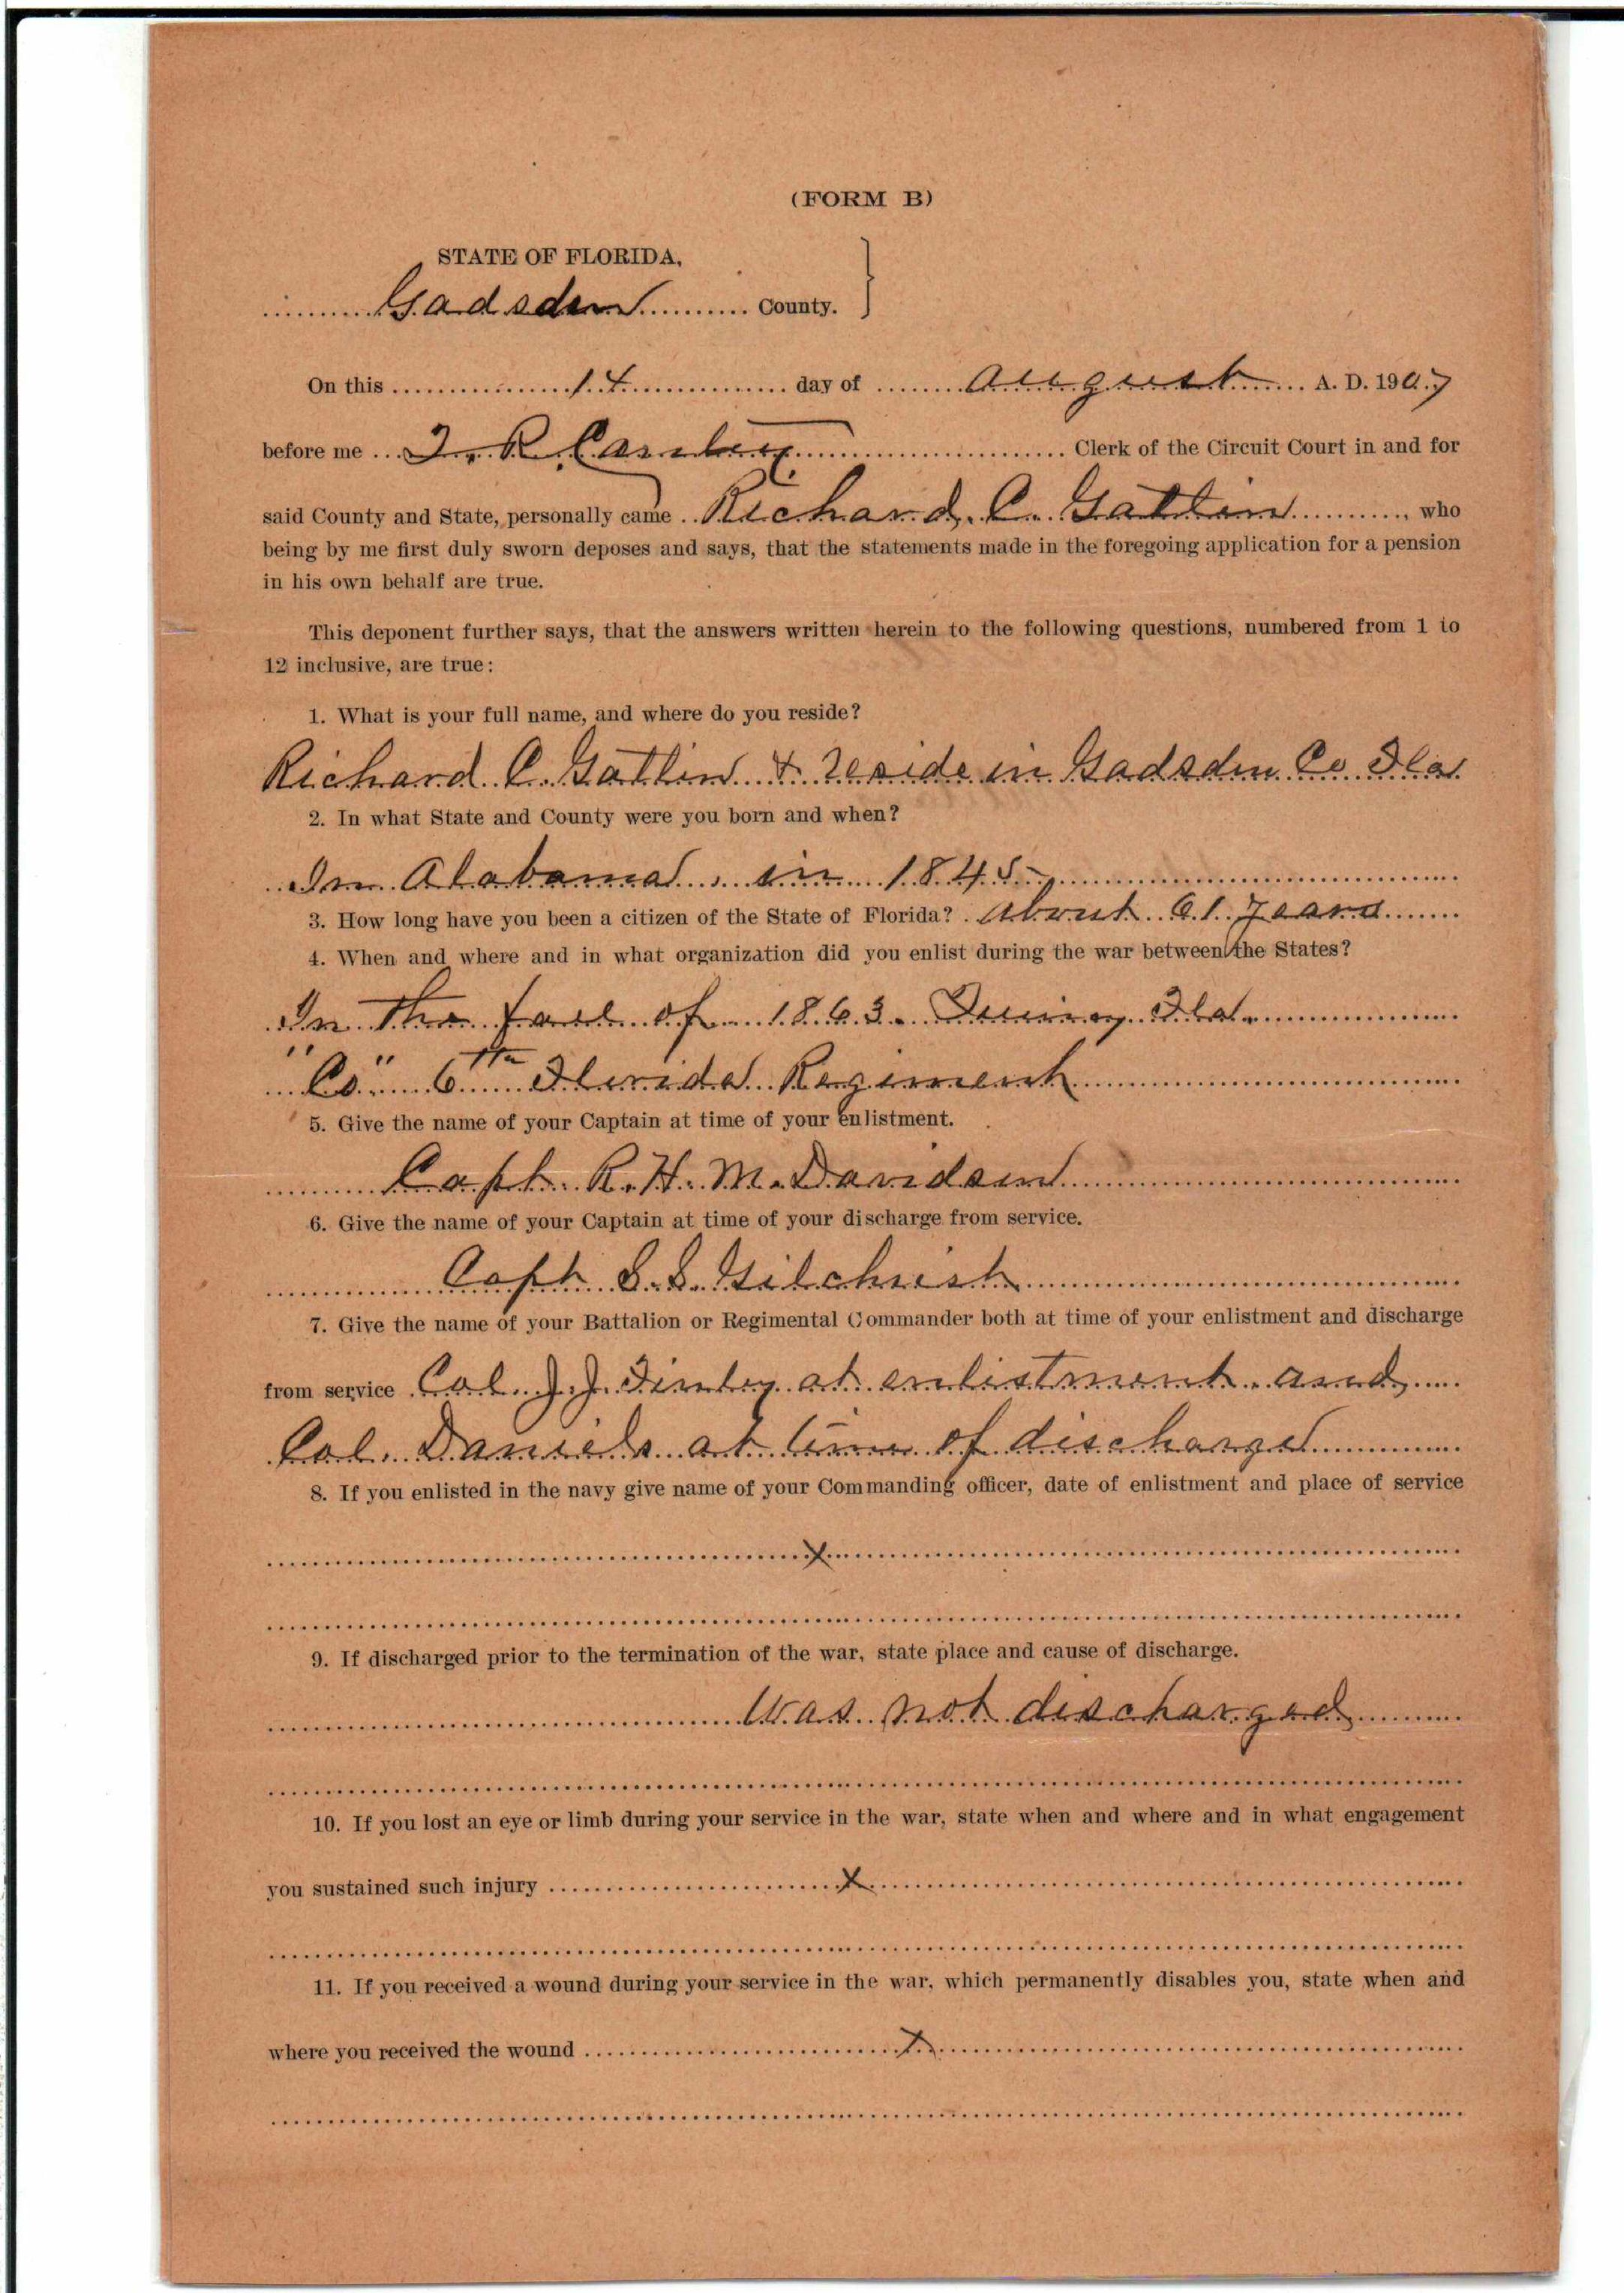 (FORM B)
STATE OF FLORIDA,
Gadsden County.
On this 14 day of August A. D. 1907
before me Clerk of the Circuit Court in and for
said County and State, personally came Richard C. Gatlin who
being by me first duly sworn deposes and says, that the statements made in the foregoing application for a pension
in his own behalf are true.
This deponent further says, that the answers written herein to the following questions, numbered from 1 to
12 inclusive, are true:
1. What is your full name, and where do you reside?
Richard C. Gatlin & reside in Gadsden Co Fla
2. In what State and County were you born and when?
In Alabama in 1845
3. How long have you been a citizen of the State of Florida? About 61 years
4. When and where and in what organization did you enlist during the war between the States?
In the fall of 1863 Quincy Fla.
6th Florida Regiment
5. Give the name of your Captain at time of your enlistment.
Capt. R. H. M. Davidson
6. Give the name of your Captain at time of your discharge from service.
Capt S. S. Gilchrist
7. Give the name of your Battalion or Regimental Commander both at time of your enlistment and discharge
from service Col. J. J. Finley at enlistment and
Col. Daniels at time of discharge
8. If you enlisted in the navy give name of your Commanding officer, date of enlistment and place of service
x
9. If discharged prior to the termination of the war, state place and cause of discharge.
Was not discharged
10. If you lost an eye or limb during your service in the war, state when and where and in what engagement
you sustained such injury x
11. If you received a wound during your service in the war, which permanently disables you, state when and
where you received the wound x